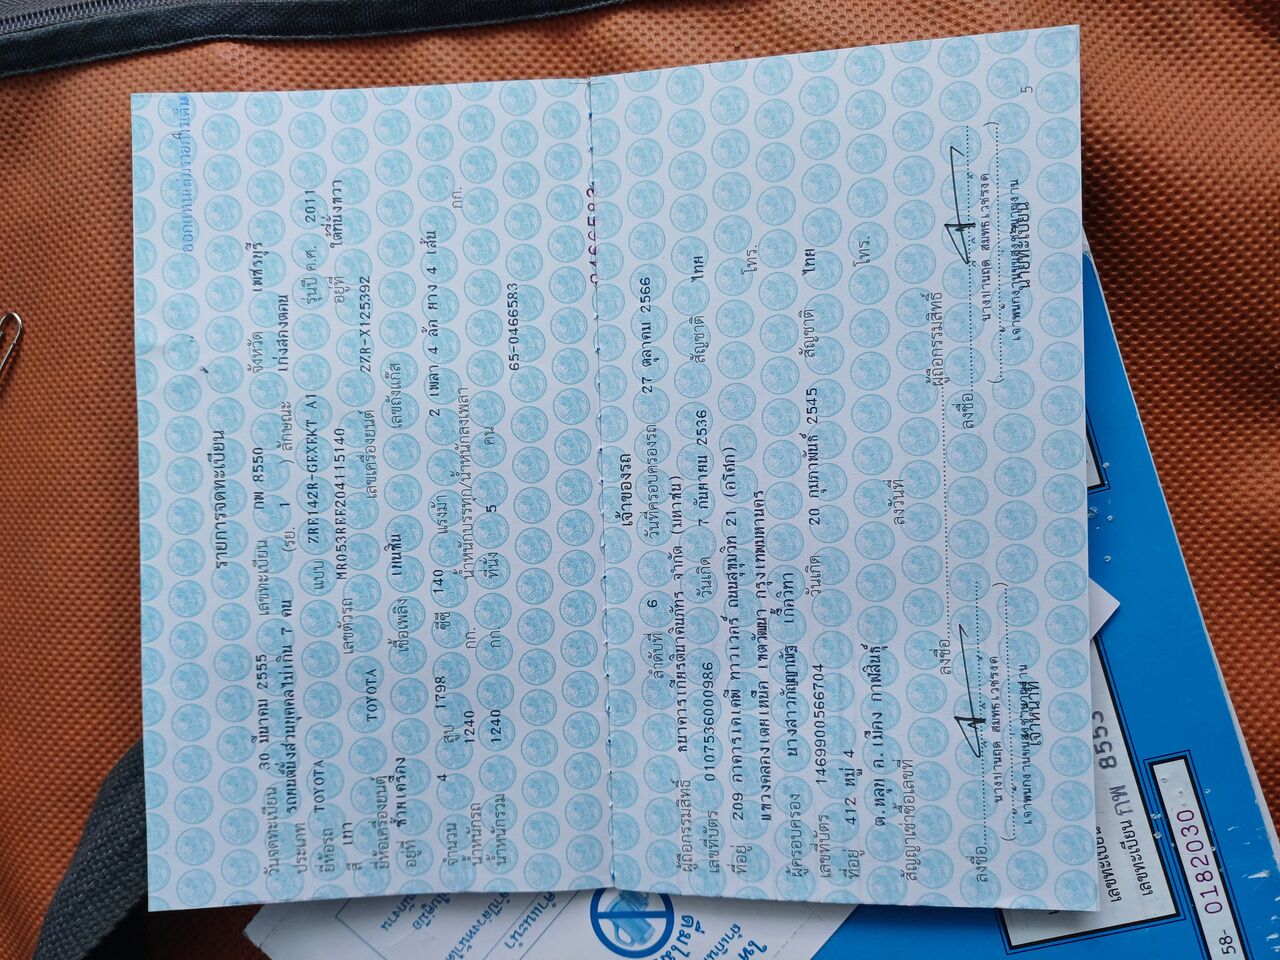 ออกแทนเล่มรายการเต็ม
รายการจดทะเบียน
วันจดทะเบียน 30 มีนาคม 2555 เลขทะเบียน กพ 8550 จังหวัด เพชรบุรี
ประเภท รถยนต์นั่งส่วนบุคคลไม่เกิน 7 คน (รย. 1 ) ลักษณะ เก๋งสองตอน
ยี่ห้อรถ TOYOTA แบบ ZRE142R-GEXEKT A1 รุ่นปี ค.ศ. 2011
สี เทา เลขตัวรถ MR053REE204115140 อยู่ที่ ใต้ที่นั่งขวา
ยี่ห้อเครื่องยนต์ TOYOTA เลขเครื่องยนต์ 2ZR-X125392
อยู่ที่ ซ้ายเครื่อง เชื้อเพลิง เบนซิน เลขถังแก๊ส
จำนวน 4 สูบ 1798 ซีซี 140 แรงม้า 2 เพลา 4 ล้อ ยาง 4 เส้น
น้ำหนักรถ 1240 กก. น้ำหนักบรรทุก/น้ำหนักลงเพลา กก.
น้ำหนักรวม 1240 กก. ที่นั่ง 5 คน
65-0466583
เจ้าของรถ
ลำดับที่ 6 วันที่ครอบครองรถ 27 ตุลาคม 2566
ผู้ถือกรรมสิทธิ์ ธนาคารเกียรตินาคินภัทร จำกัด (มหาชน)
เลขที่บัตร 0107536000986 วันเกิด 7 กันยายน 2536 สัญชาติ ไทย
ที่อยู่ 209 อาคารเคเคพี ทาวเวอร์ ถนนสุขุมวิท 21 (อโศก) โทร.
แขวงคลองเตยเหนือ เขตวัฒนา กรุงเทพมหานคร
ผู้ครอบครอง นางสาวกัญญาณัฐ เกื้อวิทา
เลขที่บัตร 1469900566704 วันเกิด 20 กุมภาพันธ์ 2545 สัญชาติ ไทย
ที่อยู่ 412 หมู่ 4 โทร.
ต.หลุบ อ.เมือง กาฬสินธุ์
สัญญาเช่าซื้อเลขที่ ลงวันที่
ลงชื่อ ผู้ถือกรรมสิทธิ์
ลงชื่อ ลงชื่อ
เจ้าหน้าที่ นายทะเบียน
5
เลขทะเบียน
เลขทะเบียน กพ 8553
58- 0182030